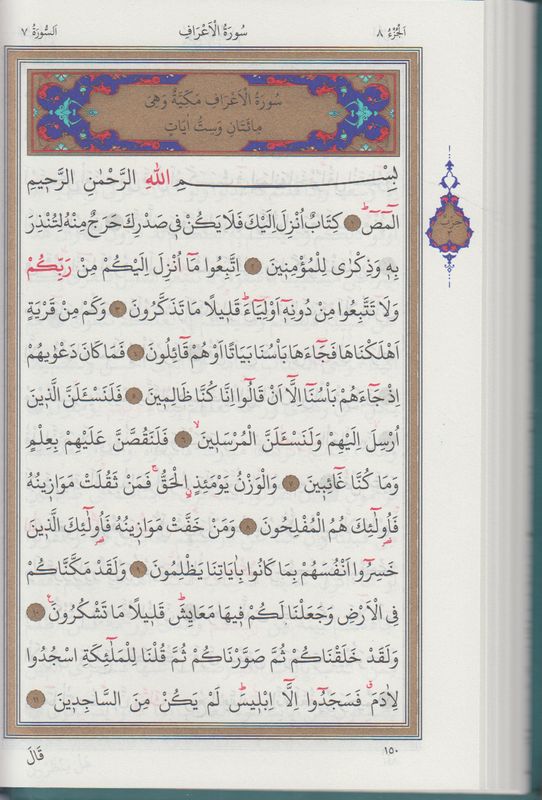 اَلْجُزْءُ ٨ سُورَةُ الْاَعْرَافِ اَلسُّورَةُ ٧
سُورَةُ الْاَعْرَافِ مَكِّيَّةٌ وَهِىَ
مِائَتَانِ وَسِتُّ اٰيَاتٍ
بِسْمِ اللّٰهِ الرَّحْمٰنِ الرَّحٖيمِ
الٓمٓصٓ ۚ ١ كِتَابٌ اُنْزِلَ اِلَيْكَ فَلَا يَكُنْ فٖى صَدْرِكَ حَرَجٌ مِنْهُ لِتُنْذِرَ
بِهٖ وَذِكْرٰى لِلْمُؤْمِنٖينَ ٢ اِتَّبِعُوا مَٓا اُنْزِلَ اِلَيْكُمْ مِنْ رَبِّكُمْ
وَلَا تَتَّبِعُوا مِنْ دُونِهٖٓ اَوْلِيَٓاءَ ؕ قَلٖيلًا مَا تَذَكَّرُونَ ٣ وَكَمْ مِنْ قَرْيَةٍ
اَهْلَكْنَاهَا فَجَٓاءَهَا بَاْسُنَا بَيَاتًا اَوْ هُمْ قَٓائِلُونَ ٤ فَمَا كَانَ دَعْوٰيهُمْ
اِذْ جَٓاءَهُمْ بَاْسُنَٓا اِلَّٓا اَنْ قَالُٓوا اِنَّا كُنَّا ظَالِمٖينَ ٥ فَلَنَسْـَٔلَنَّ الَّذٖينَ
اُرْسِلَ اِلَيْهِمْ وَلَنَسْـَٔلَنَّ الْمُرْسَلٖينَ ۙ ٦ فَلَنَقُصَّنَّ عَلَيْهِمْ بِعِلْمٍ
وَمَا كُنَّا غَٓائِبٖينَ ٧ وَالْوَزْنُ يَوْمَئِذٍ ࣙالْحَقُّ ۚ فَمَنْ ثَقُلَتْ مَوَازٖينُهُ
فَاُولٰٓئِكَ هُمُ الْمُفْلِحُونَ ٨ وَمَنْ خَفَّتْ مَوَازٖينُهُ فَاُولٰٓئِكَ الَّذٖينَ
خَسِرُٓوا اَنْفُسَهُمْ بِمَا كَانُوا بِاٰيَاتِنَا يَظْلِمُونَ ٩ وَلَقَدْ مَكَّنَّاكُمْ
فِى الْاَرْضِ وَجَعَلْنَا لَكُمْ فٖيهَا مَعَايِشَ ؕ قَلٖيلًا مَا تَشْكُرُونَ ١٠
وَلَقَدْ خَلَقْنَاكُمْ ثُمَّ صَوَّرْنَاكُمْ ثُمَّ قُلْنَا لِلْمَلٰٓئِكَةِ اسْجُدُوا
لِاٰدَمَ ࣗ فَسَجَدُٓوا اِلَّٓا اِبْلٖيسَ ؕ لَمْ يَكُنْ مِنَ السَّاجِدٖينَ ١١
١٥٠ قَالَ